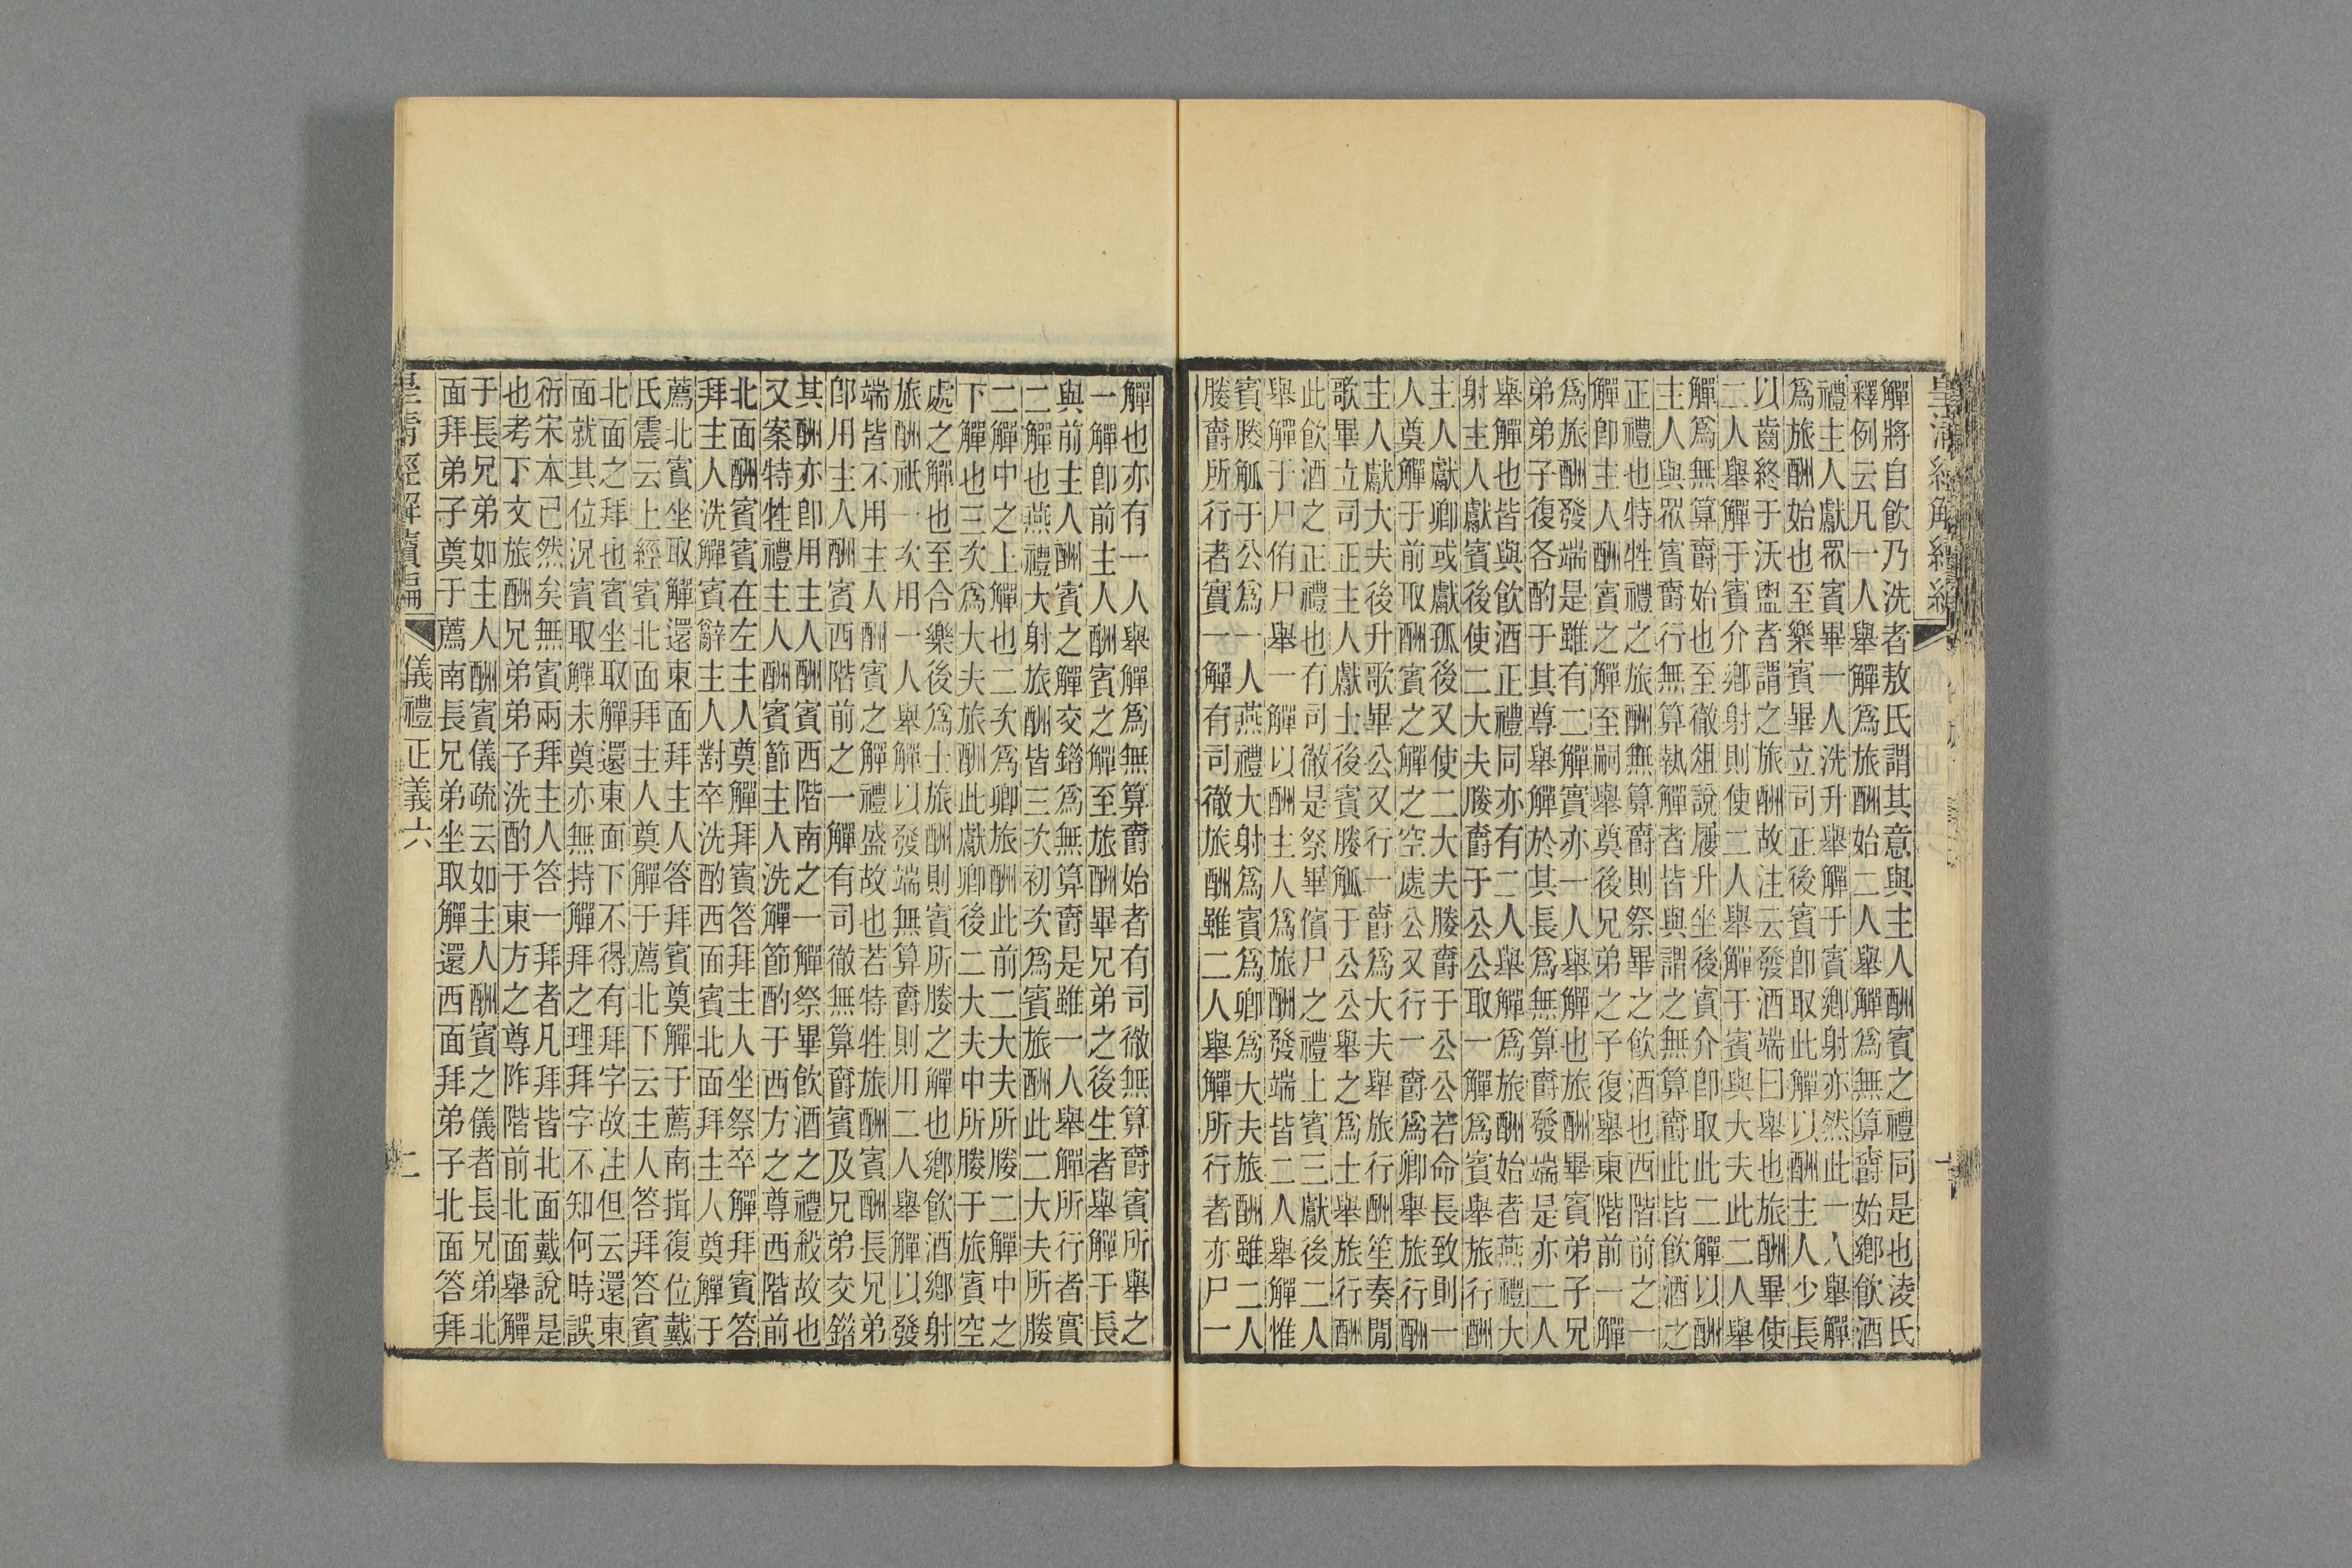 觶將自飲乃洗者敖氏謂其意與主人酬賓之禮同是也淩氏
釋例云凡一人舉觶爲旅酬始二人舉觶爲無算爵始鄉飲酒
禮主人獻眾賓畢一人洗升舉觶于賓鄉射亦然此一人舉觶
爲旅酬始也至樂賓畢立司正後賓卽取此觶以酬主人少長
以齒終于沃盥者謂之旅酬故注云發酒端曰舉也旅酬畢使
二人舉觶于賓介鄉射則使二人舉觶于賓與大夫此二人舉
觶爲無算爵始也至徹俎說屨升坐後賓介卽取此二觶以酬
主人與眾賓爵行無算執觶者皆與謂之無算爵此皆飲酒之
正禮也特牲禮之旅酬無算爵則祭畢之飲酒也西階前之一
觶卽主人酬賓之觶至嗣舉奠後兄弟之子復舉東階前一觶
爲旅酬發端是雖有二觶實亦一人舉觶也旅酬畢賓弟子兄
弟弟子復各酌于其尊舉觶於其長爲無算爵發端是亦二人
舉觶也皆與飲酒正禮同亦有二人舉觶爲旅酬始者燕禮大
射主人獻賓後使二大夫媵爵于公公取一觶爲賓舉旅行酬
主人獻卿或獻孤後又使二大夫媵爵于公公若命長致則一
人奠觶于前取酬賓之觶之空處公又行一爵爲卿舉旅行酬
主人獻大夫後升歌畢公又行一爵爲大夫舉旅行酬笙奏閒
歌畢立司正主人獻士後賓媵觚于公公舉之爲士舉旅行酬
此飲酒之正禮也有司徹是祭畢儐尸之禮上賓三獻後二人
舉觶于尸侑尸舉一觶以酬主人爲旅酬發端皆二人舉觶惟
賓媵觚于公爲一人燕禮大射爲賓爲卿爲大夫旅酬雖二人
媵爵所行者實一觶有司徹旅酬雖二人舉觶所行者亦尸一
觶也亦有一人舉觶爲無算爵始者有司徹無算爵賓所舉之
一觶卽前主人酬賓之觶至旅酬畢兄弟之後生者舉觶于長
與前主人酬賓之觶交錯爲無算爵是雖一人舉觶所行者實
二觶也燕禮大射旅酬皆三次初次爲賓旅酬此二大夫所媵
二觶中之上觶也二次爲卿旅酬此前二大夫所媵二觶中之
下觶也三次爲大夫旅酬此獻卿後二大夫中所媵于旅賓空
處之觶也至合樂後爲士旅酬則賓所媵之觶也鄉飲酒鄉射
旅酬祇一次用一人舉觶以發端無算爵則用二人舉觶以發
端皆不用主人酬賓之觶禮盛故也若特牲旅酬賓酬長兄弟
卽用主人酬賓西階前之一觶有司徹無算爵賓及兄弟交錯
其酬亦卽用主人酬賓西階南之一觶祭畢飲酒之禮殺故也
又案特牲禮主人酬賓節主人洗觶節酌于西方之尊西階前
北面酬賓賓在左主人奠觶拜賓答拜主人坐祭卒觶拜賓答
拜主人洗觶賓辭主人對卒洗酌西面賓北面拜主人奠觶于
薦北賓坐取觶還東面拜主人答拜賓奠觶于薦南揖復位戴
氏震云上經賓北面拜主人奠觶于薦北下云主人答拜答賓
北面之拜也賓坐取觶還東面下不得有拜字故注但云還東
面就其位況賓取觶未奠亦無持觶拜之理拜字不知何時誤
衍宋本已然矣無賓兩拜主人答一拜者凡拜皆北面戴說是
也考下文旅酬兄弟弟子洗酌于東方之尊阼階前北面舉觶
于長兄弟如主人酬賓儀疏云如主人酬賓之儀者長兄弟北
面拜弟子奠于薦南長兄弟坐取觶還西面拜弟子北面答拜
皇清經解續編
儀禮正義六
二